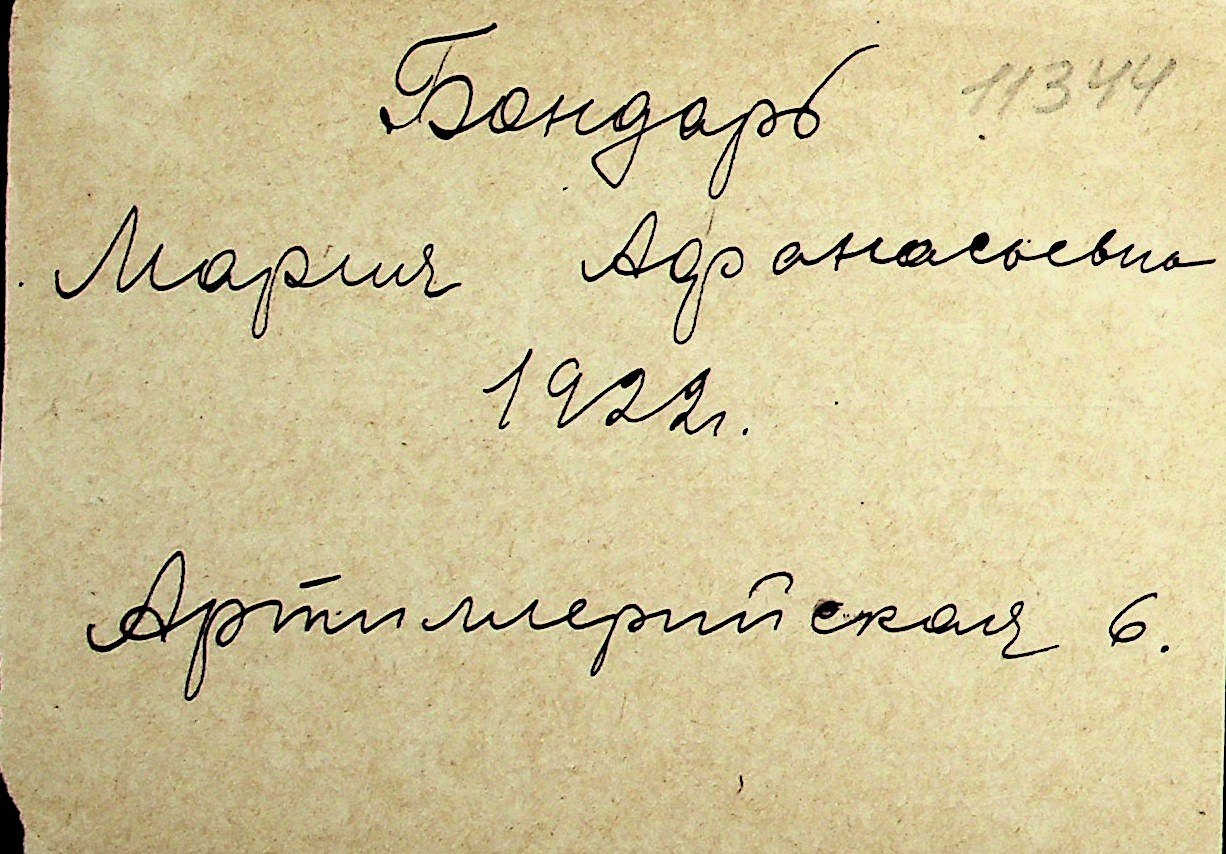 Бондарь 11344
Мария Афанасьевна
1922г.
Артиллерийская 6.